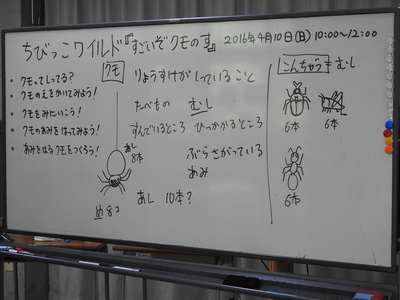 ちびっこワイルド『すごいぞ クモのす』 2016年4月10日(日) 10:00~12:00
• クモってしってる?
• クモのえをかいてみよう!
• クモをみにいこう!
• クモのあみをはってみよう!
• あみをはるクモをつくろう!
クモ りょうすけが しっていること
たべもの むし
すんでいるところ ひっかかるところ
ぶらさがっている
あみ
あし 10本?
あし
8本
め 8コ
こんちゅう = むし
6本 6本
6本